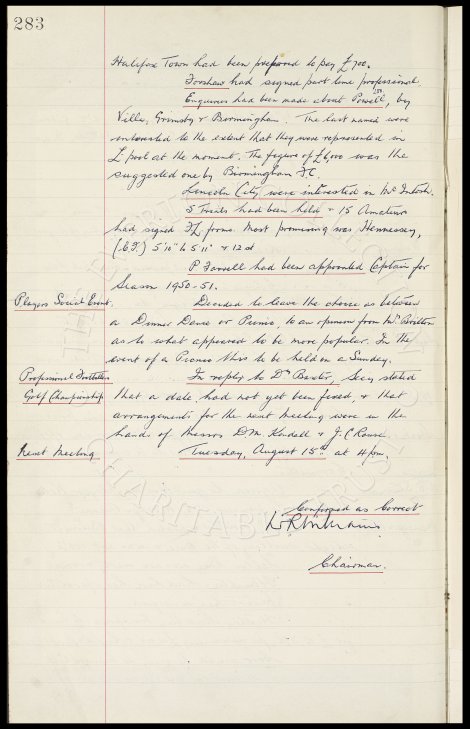 283
Halifax Town had been prepared to pay £700.
Forshaw had signed part time professional
Enquiries had been made about Powell, by
Villa, Grimsby & Birmingham. The last named were
interested to the extent that they were represented in
L'pool at the moment. The figure of £6,000 was the
suggested one by Birmingham F.C.
Lincoln City were interested in McIntosh.
5 Trials had been held & 15 Amateurs
had signed F.L. forms. Most promising was Hennessy,
5'10" to 5'11" & 12 st
P Farrell had been appointed Captain for
Season 1950-51.
Players Social Event. Decided to leave the choice as between
a Dinner Dance or Picnic, to an opinion from Mr Britton
as to what appeared to be more popular. In the
event of a Picnic this to be held on a Sunday.
Professional Footballers In reply to Dr Baxter, Secy stated
Golf Championship that a date had not yet been fixed, & that
arrangements for the next meeting were in the
hands of Messrs D.M. Kendall & J.C. Rouse.
Next Meeting Tuesday, August 15th at 4pm.
Confirmed as Correct
Chairman.